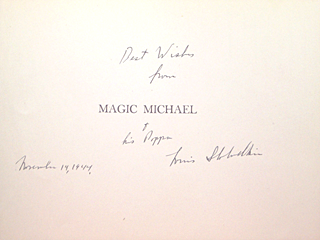 Best Wishes
from
MAGIC MICHAEL
&
his Poppa
Louis Slobodkin
November 14, 1944